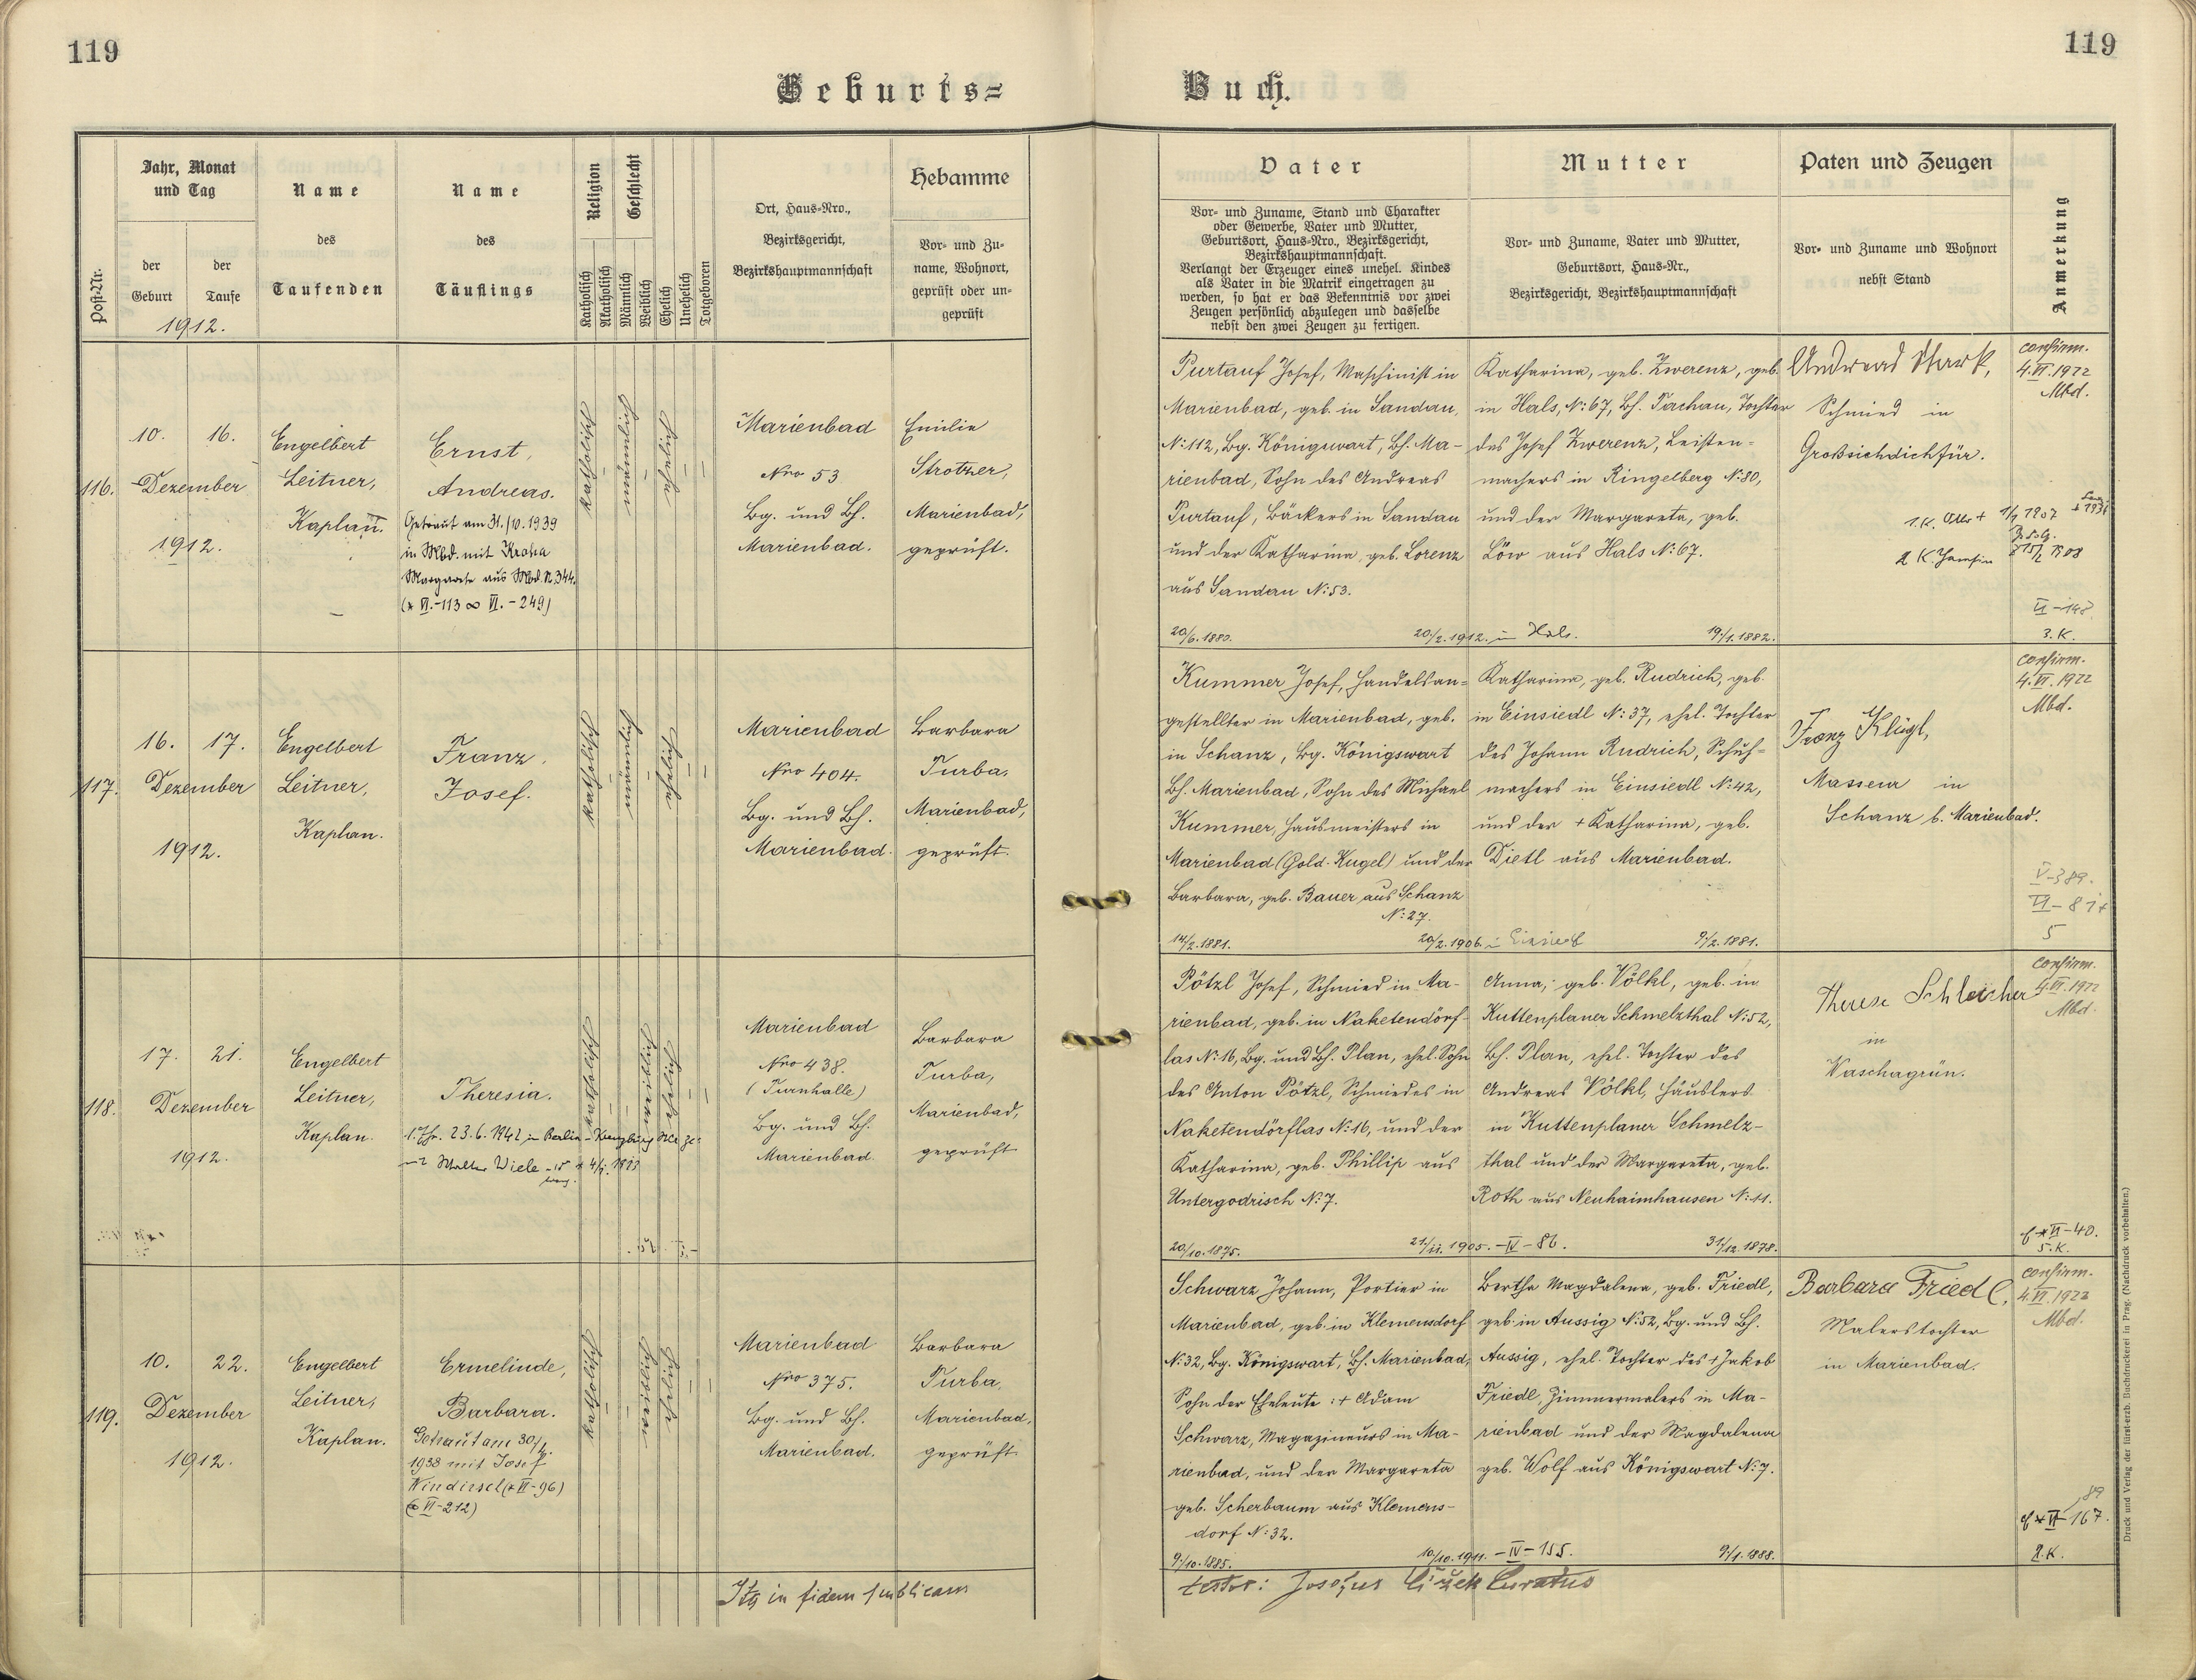 119
119
Geburts=
Buch.
Post-Nr.
Jahr, Monat
und Tag
der
Geburt
der
Taufe
1912.
Name
des
Taufenden
Name
des
Täuflings
Religion
Katholisch
Akatholisch
Geschlecht
Männlich
Weiblich
Ehelich
Unehelich
Totgeboren
Ort, Haus-Nro.,
Bezirksgericht,
Bezirkshauptmannschaft
Hebamme
Vor- und Zu-
name, Wohnort,
geprüft oder un-
geprüft
Vater
Vor- und Zuname, Stand und Charakter
oder Gewerbe, Vater und Mutter,
Geburtsort, Haus-Nro., Bezirksgericht,
Bezirkshauptmannschaft.
Verlangt der Erzeuger eines unehel. Kindes
als Vater in die Matrik eingetragen zu
werden, so hat er das Bekenntnis vor zwei
Zeugen persönlich abzulegen und dasselbe
nebst den zwei Zeugen zu fertigen.
Mutter
Vor- und Zuname, Vater und Mutter,
Geburtsort, Haus-Nr.,
Bezirksgericht, Bezirkshauptmannschaft
Paten und Zeugen
Vor- und Zuname und Wohnort
nebst Stand
Anmerkung
116.
10. 16.
Dezember
1912.
Engelbert
Leitner,
Kaplan.
Ernst,
Andreas.
Getraut am 31./10.1939
in Mbd. mit Kroha
Margarete aus Mbd. N.344.
(* VI.-113 ∞ VI.-249)
katholisch
männlich
ehelich
Marienbad
Nro 53
Bg. und Bh.
Marienbad.
Emilie
Strotzer,
Marienbad,
geprüft.
Purtauf Josef, Maschinist in
Marienbad, geb. in Sandau,
N:112, Bg. Königswart, Bh. Ma-
rienbad, Sohn des Andreas
Purtauf, Bäckers in Sandau
und der Katharina, geb. Lorenz
aus Sandau N:53.
20/6.1880.
20/2.1912. in Hals.
Katharina, geb. Zwerenz, geb.
in Hals, N:67, Bh. Tachau, Tochter
des Josef Zwerenz, Leisten-
machers in Ringelberg N:80,
und der Margareta, geb.
Löw aus Hals N:67.
19/1.1882.
Andreas Stark,
Schmied in
Großsichdichfür.
confirm.
4.VI.1922
Mbd.
VI-148
3.K.
117.
16. 17.
Dezember
1912.
Engelbert
Leitner,
Kaplan.
Franz,
Josef.
katholisch
männlich
ehelich
Marienbad
Nro 404.
Bg. und Bh.
Marienbad.
Barbara
Turba,
Marienbad,
geprüft.
Kummer Josef, Handelsan=
gestellter in Marienbad, geb.
in Schanz, Bg. Königswart
Bh. Marienbad, Sohn des Michael
Kummer, Hausmeisters in
Marienbad (Gold. Kugel) und der
Barbara, geb. Bauer aus Schanz
N:27.
14/2.1881.
20/2.1906. in Einsiedl
Katharina, geb. Rudrich, geb.
in Einsiedl N:37, ehel. Tochter
des Johann Rudrich, Schuh=
machers in Einsiedl N:42,
und der + Katharina, geb.
Dietl aus Marienbad.
9/2.1881.
Franz Klügl,
Masseur in
Schanz b. Marienbad.
confirm.
4.VI.1922
Mbd.
V-389.
VI-81+
5
118.
17. 21.
Dezember
1912.
Engelbert
Leitner,
Kaplan.
Theresia.
23.6.1942 in Berlin-
katholisch
weiblich
ehelich
Marienbad
Nro 438.
(Turnhalle)
Bg. und Bh.
Marienbad.
Barbara
Turba,
Marienbad,
geprüft
Pötzl Josef, Schmied in Ma-
rienbad, geb. in Naketendörf-
las N:16, Bg. und Bh. Plan, ehel. Sohn
des Anton Pötzl, Schmiedes in
Naketendörflas N:16, und der
Katharina, geb. Phillip aus
Untergodrisch N:7.
20/10.1875.
21/11.1905.-IV-86.
Anna, geb. Völkl, geb. in
Kuttenplaner Schmelzthal N:52,
Bh. Plan, ehel. Tochter des
Andreas Völkl, Häuslers
in Kuttenplaner Schmelz-
thal und der Margareta, geb.
Roth aus Neuhaimhausen N:11.
31/12.1878.
Therese Schleicher
in
Waschagrün.
confirm.
4.VI.1922
Mbd.
*VI-40.
5.K.
119.
10. 22.
Dezember
1912.
Engelbert
Leitner,
Kaplan.
Ermelinde,
Barbara.
Getraut am 30/4.
1938 mit Josef
Windirsch (* VI-96)
(∞ VI-212)
katholisch
weiblich
ehelich
Marienbad
Nro 375.
Bg. und Bh.
Marienbad.
Barbara
Turba,
Marienbad,
geprüft
Schwarz Johann, Portier in
Marienbad, geb. in Klemensdorf
N:32, Bg. Königswart, Bh. Marienbad,
Sohn der Eheleute: + Adam
Schwarz, Magazineurs in Ma-
rienbad, und der Margareta
geb. Scherbaum aus Klemens-
dorf N:32.
9/10.1885.
10/10.1911.-IV-155.
Bertha Magdalena, geb. Friedl,
geb. in Aussig N:52, Bg. und Bh.
Aussig, ehel. Tochter des + Jakob
Friedl, Zimmermalers in Ma-
rienbad und der Magdalena
geb. Wolf aus Königswart N:7.
9/1.1888.
Barbara Friedl,
Malerstochter
in Marienbad.
confirm.
4.VI.1922
Mbd.
89
*VI-167.
2.K.
Ita in fidem publicam
testor: Josefus Čížek Curatus
Druck und Verlag der fürst-erzb. Buchdruckerei in Prag. (Nachdruck vorbehalten.)